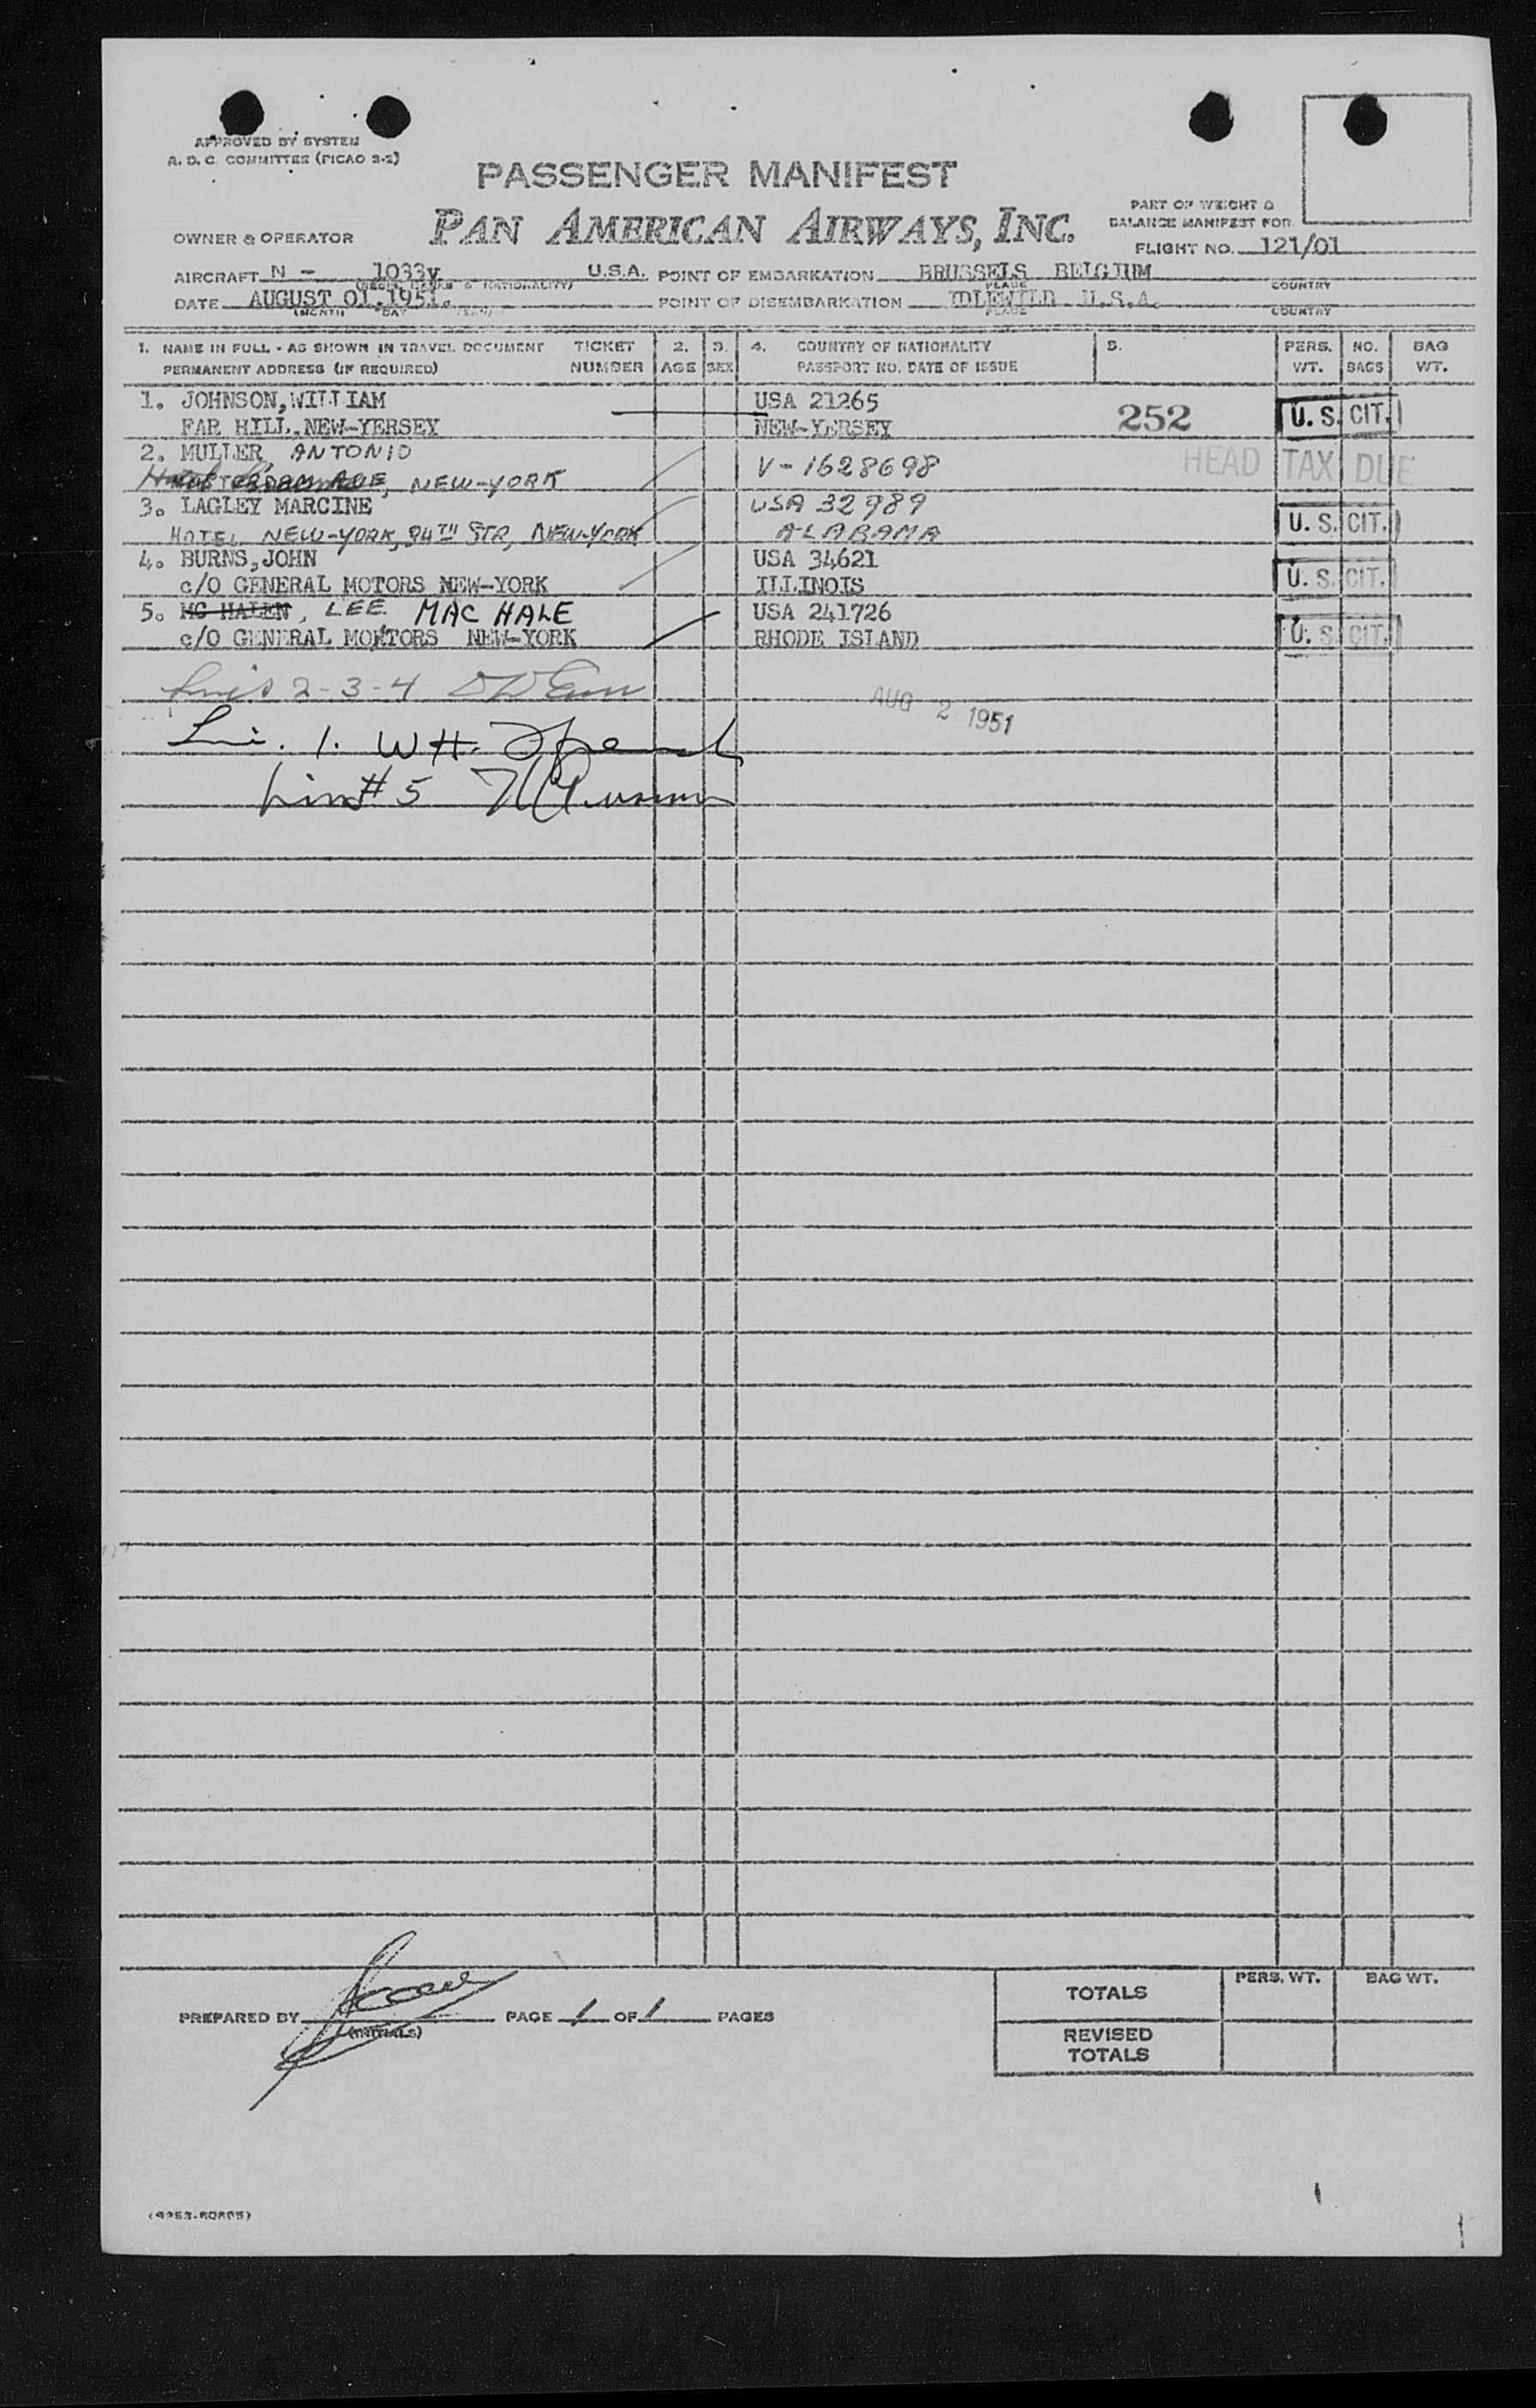 APPROVED BY SYSTEM
A. D. C. COMMITTEE (PICAO 3-2)
PASSENGER MANIFEST
PAN AMERICAN AIRWAYS, INC.
PART OF WEIGHT &
BALANCE MANIFEST FOR
OWNER & OPERATOR
FLIGHT NO. 121/01
AIRCRAFT N - 1033v U.S.A. POINT OF EMBARKATION BRUSSELS BELGIUM
PLACE COUNTRY
DATE AUGUST 01.1951. POINT OF DISEMBARKATION IDLEWILD U.S.A.
(MONTH DAY YEAR) PLACE COUNTRY
1. NAME IN FULL - AS SHOWN IN TRAVEL DOCUMENT TICKET 2. 3. 4. COUNTRY OF NATIONALITY 5. PERS. NO. BAG
PERMANENT ADDRESS (IF REQUIRED) NUMBER AGE SEX PASSPORT NO. DATE OF ISSUE WT. BAGS WT.
1. JOHNSON,WILLIAM USA 21265
252 U. S. CIT.
FAR HILL,NEW-YERSEY NEW-YERSEY
2. MULLER, ANTONIO
V-1628698 HEAD TAX DUE
NEW-YORK
3. LAGLEY MARCINE USA 32989
U. S. CIT.
HOTEL NEW-YORK, 34TH STR, NEW-YORK ALABAMA
4. BURNS,JOHN USA 34621
U. S. CIT.
c/O GENERAL MOTORS NEW-YORK ILLINOIS
5. MC HALEN, LEE. MAC HALE USA 241726
U. S. CIT.
c/O GENERAL MOTORS NEW-YORK RHODE ISLAND
2-3-4
AUG 2 1951
1. WH.
# 5
PREPARED BY PAGE 1 OF 1 PAGES
(INITIALS)
TOTALS PERS. WT. BAG WT.
REVISED
TOTALS